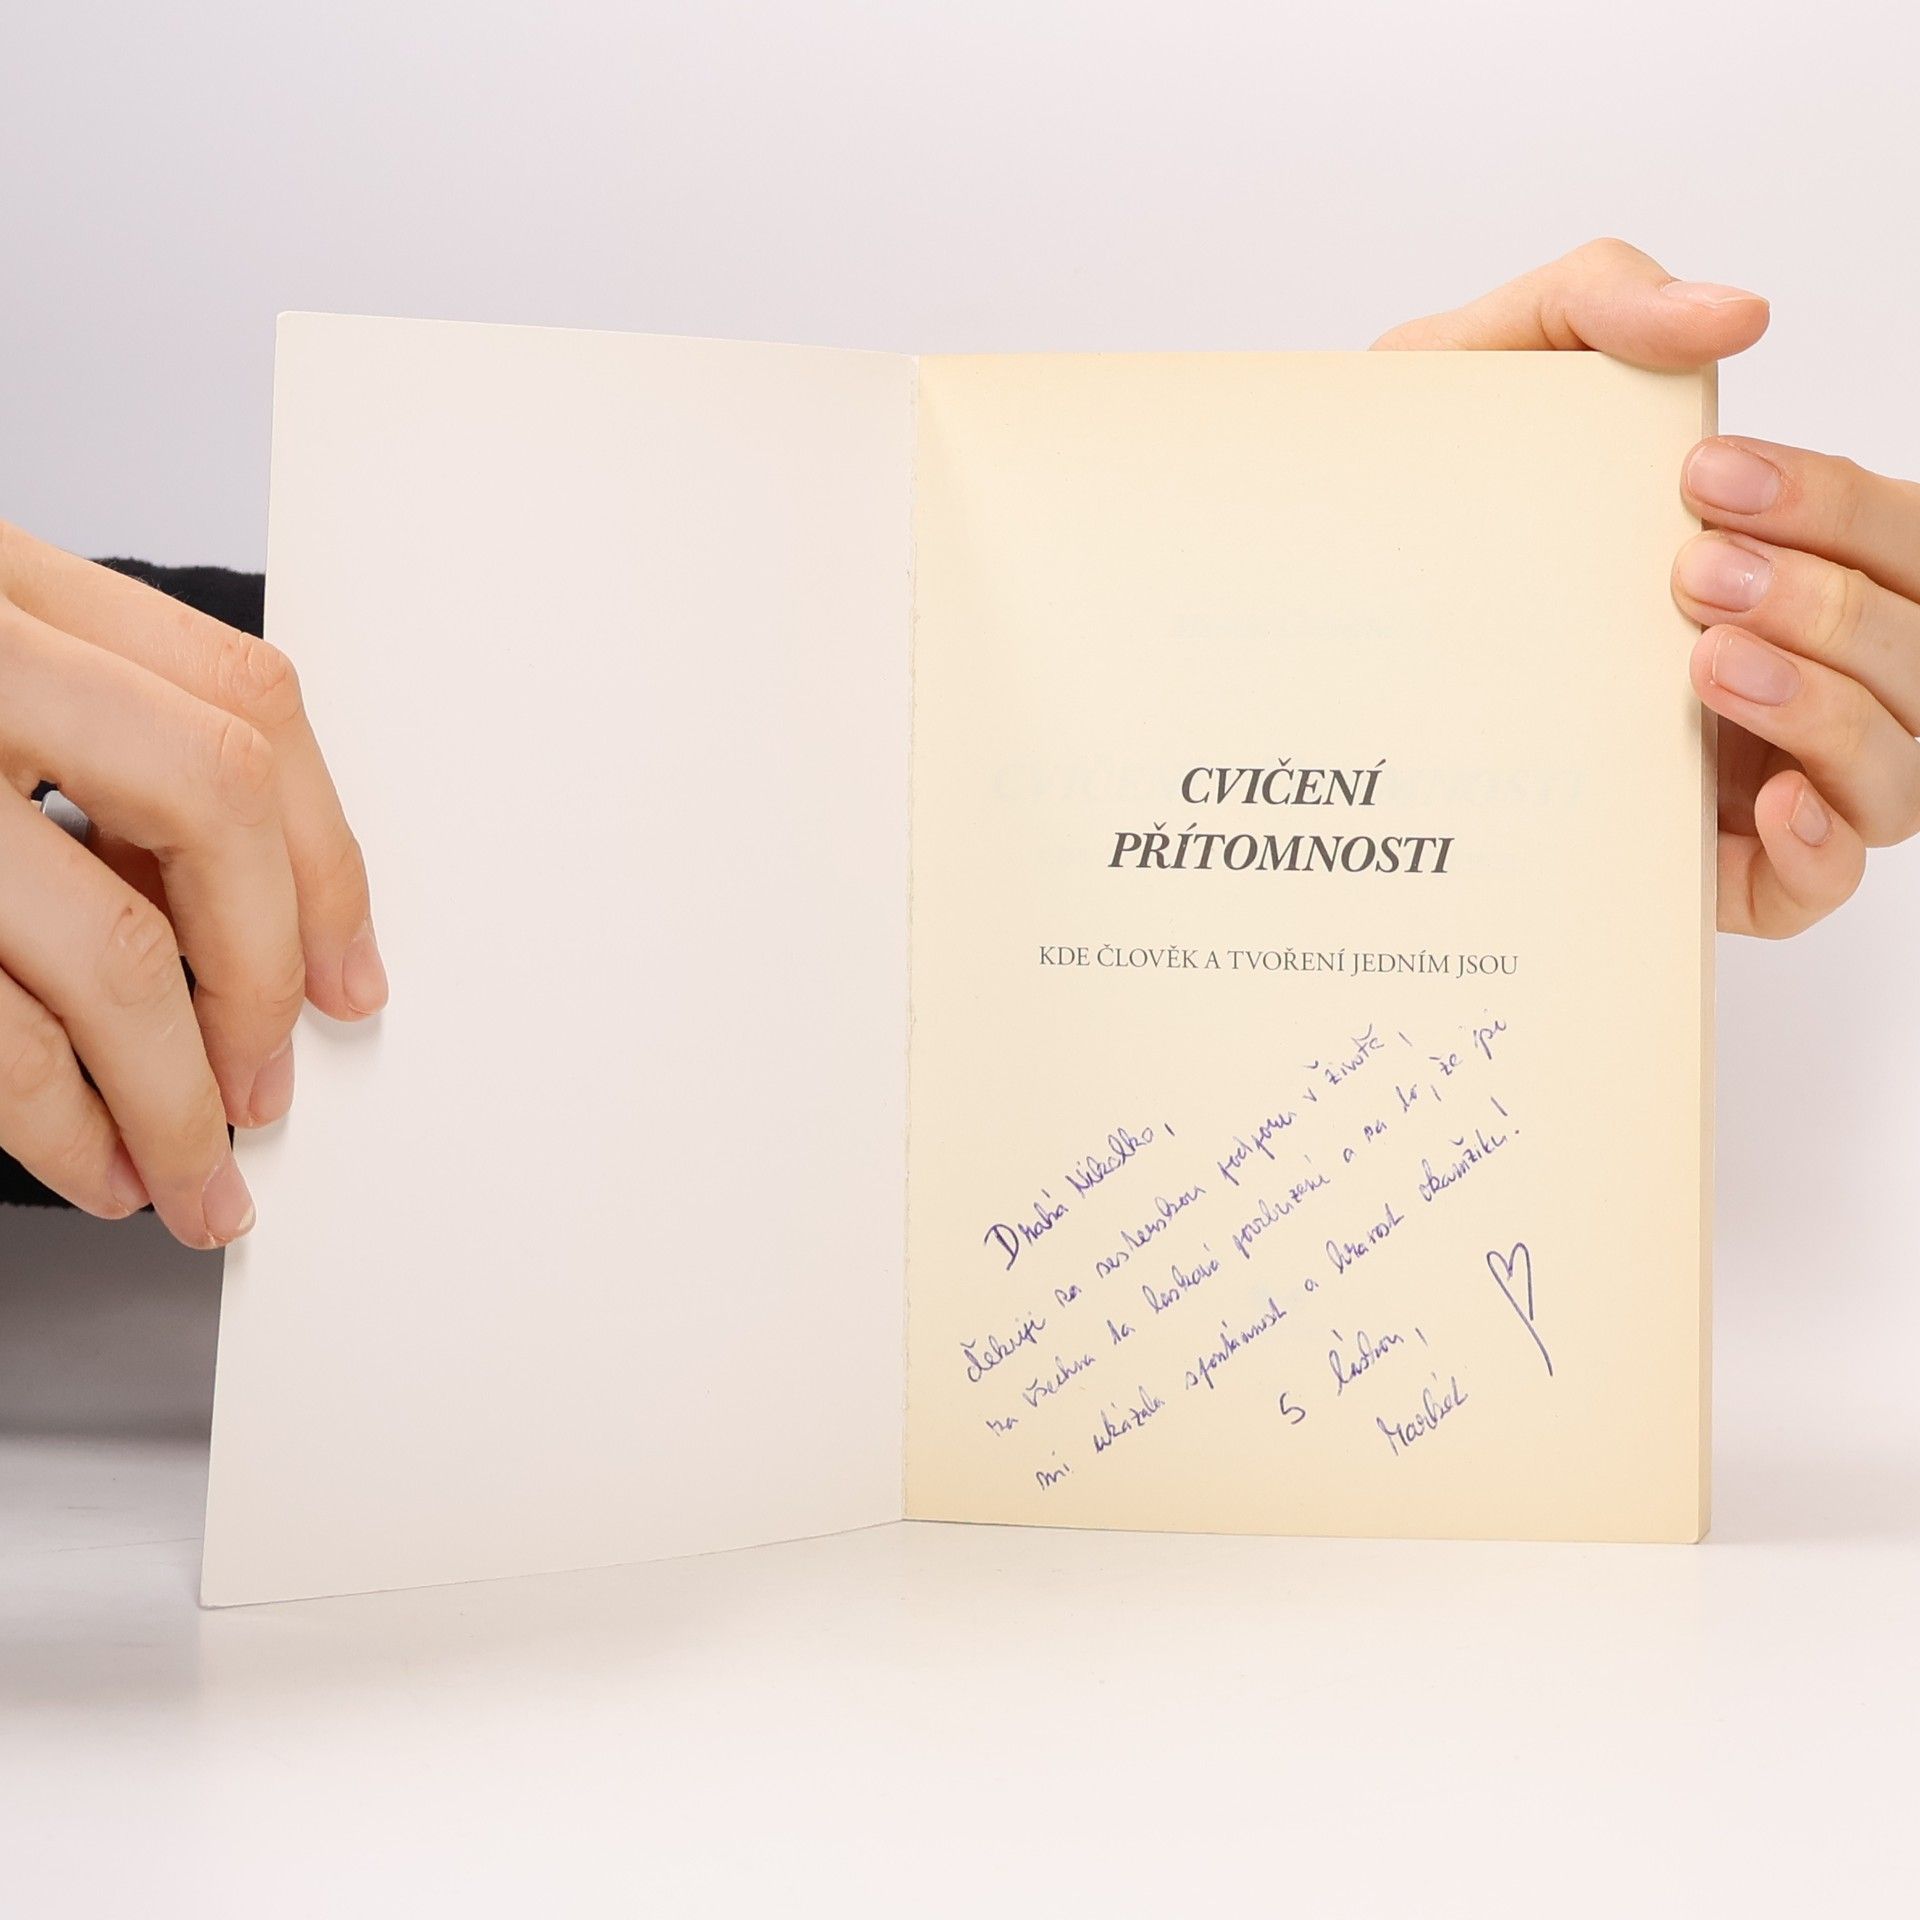 CVIČENÍ
PŘÍTOMNOSTI
KDE ČLOVĚK A TVOŘENÍ JEDNÍM JSOU
Drahá Nikolko,
děkuji za sesterskou podporu v životě,
za všechna ta laskavá povzbuzení a za to, že jsi
mi ukázala spontánnost a hravost okamžiku!
S láskou,